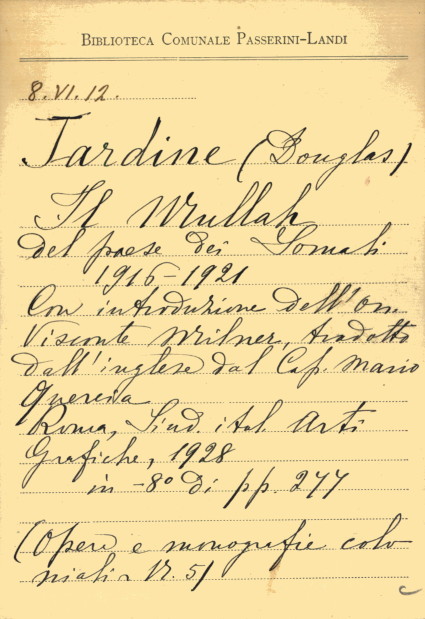 BIBLIOTECA COMUNALE PASSERINI-LANDI
8. VI. 12.
Jardine (Douglas)
Il Mullah
del paese dei Somali
1916-1921
Con introduzione dell'On.
Visconte Milner, tradotto
dall'inglese dal Cap. Mario
Quercia
Roma, Sind. ital. Arti
Grafiche, 1928
in -8° di pp. 277
(Opere e monografie colo-
niali - N. 5)